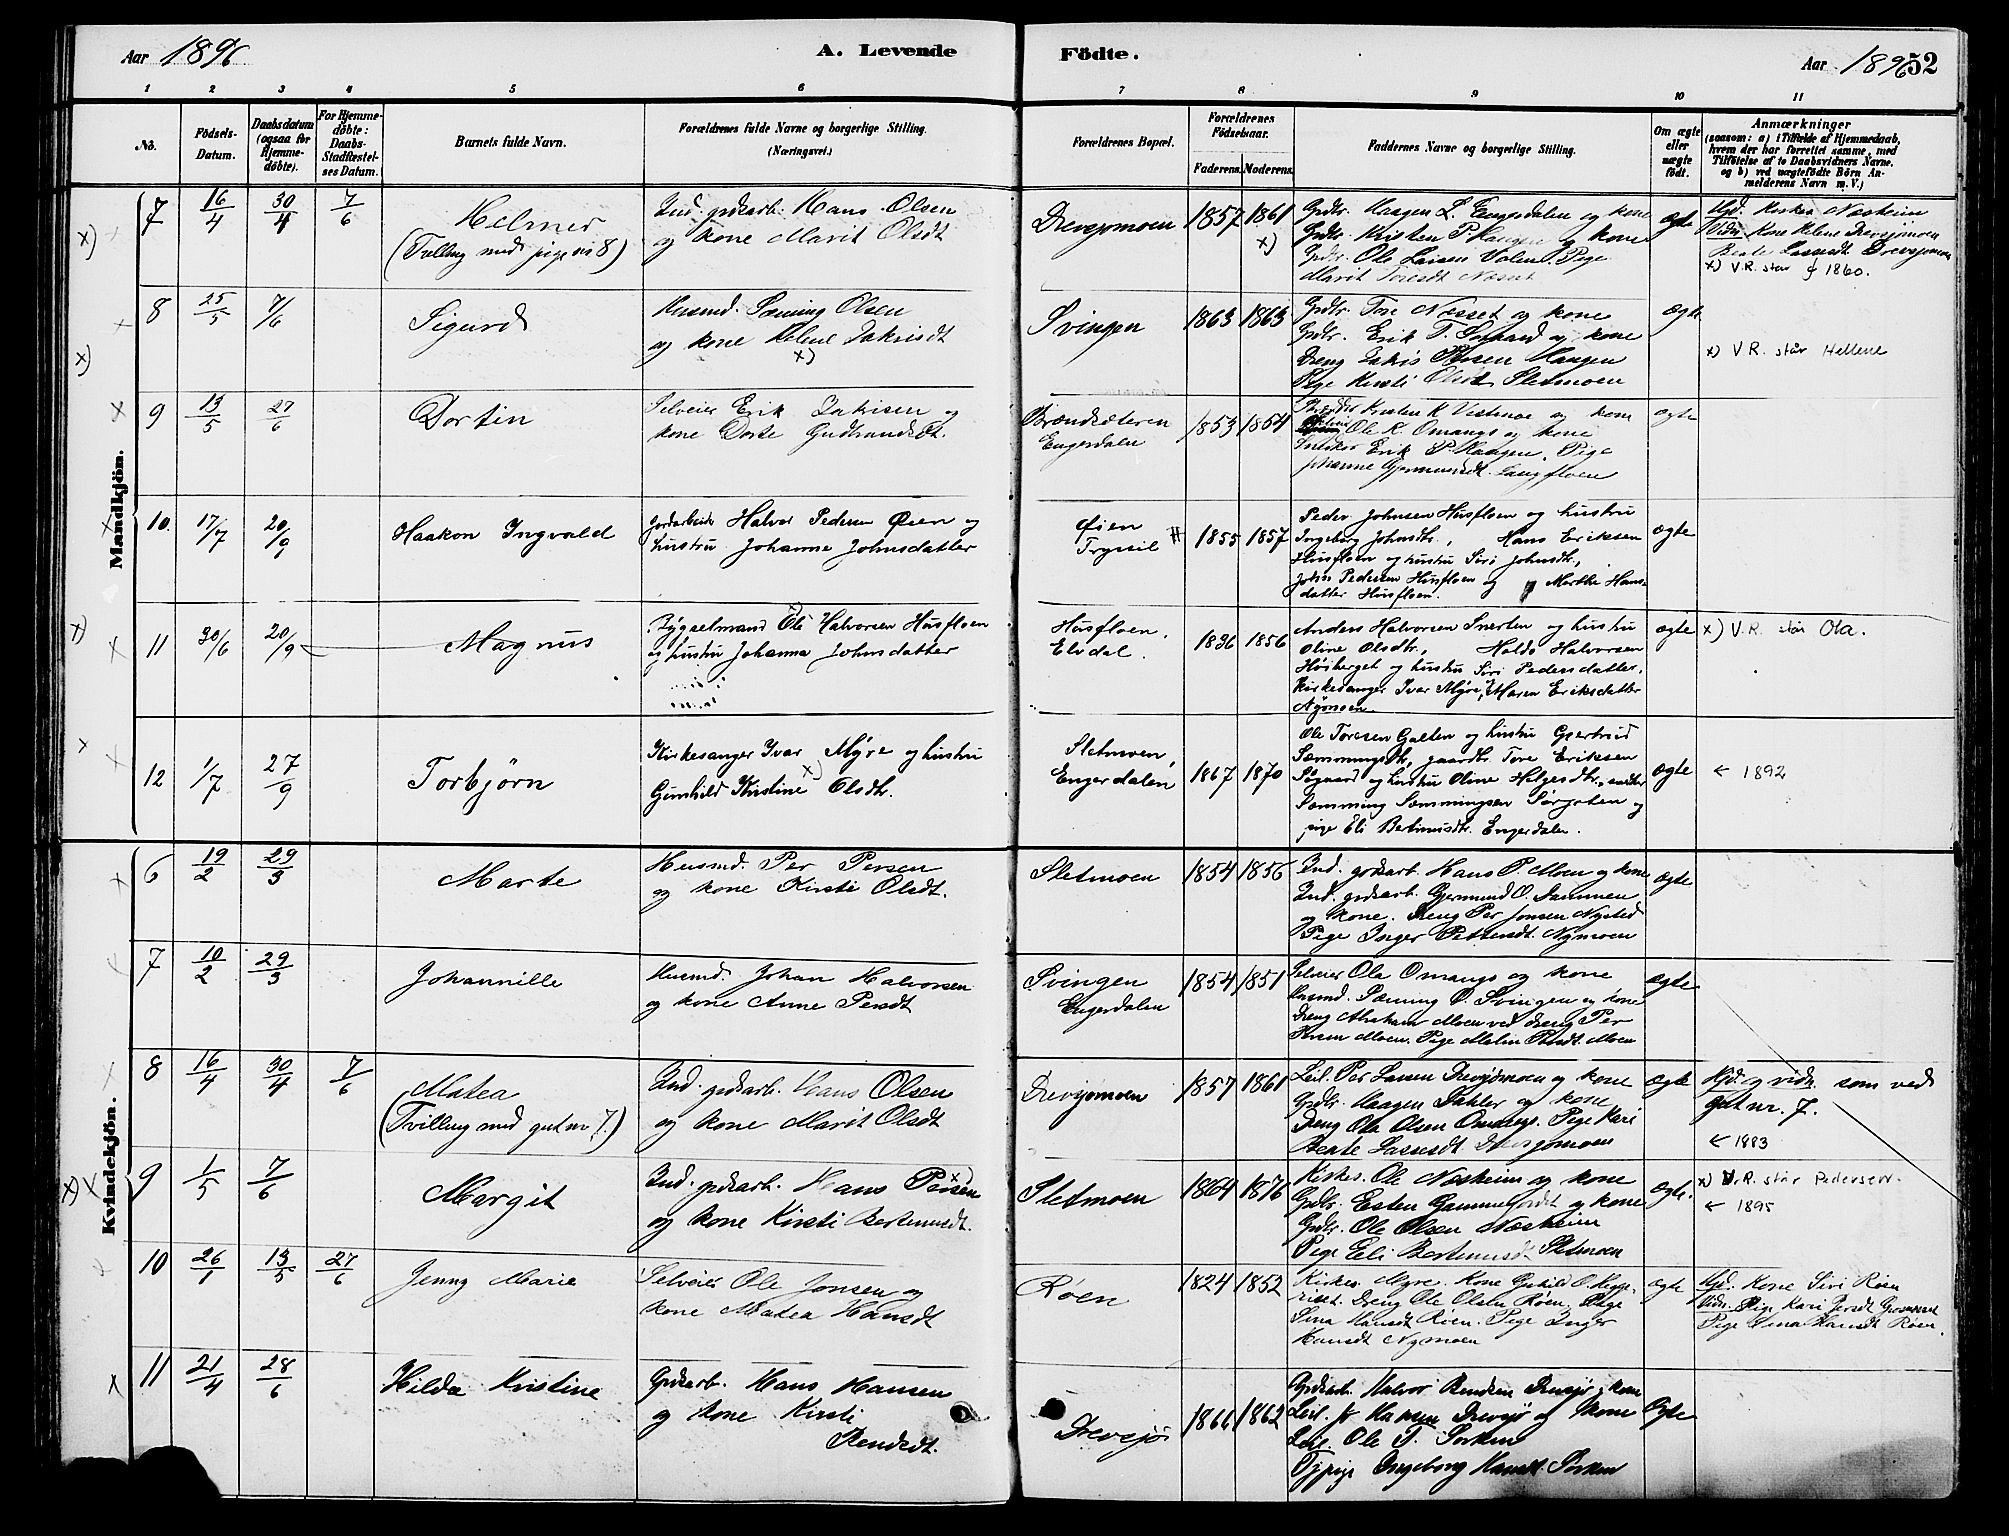 Aar 1896
A. Levende
Födte.
Aar 1896
52
1 2 3 4 5 6 7 8 9 10 11
No.
Födsels-
Datum.
Daabsdatum
(ogsaa for
Hjemme-
döbte).
For Hjemme-
döbte:
Daabs-
Stadfæstel-
ses Datum.
Barnets fulde Navn.
Forældrenes fulde Navne og borgerlige Stilling.
(Næringsvei.)
Forældrenes Bopæl.
Forældrenes
Födselsaar.
Faderens. Moderens.
Faddernes Navne og borgerlige Stilling.
Om ægte
eller
uægte
födt.
Anmærkninger
(saasom: a) i Tilfælde af Hjemmedaab,
hvem der har forrettet samme, med
Tilföielse af to Daabsvidners Navne,
og b) ved uægtefödte Börn An-
melderens Navn m. V.)
Mandkjön.
7 16/4 30/4 7/6
Helmer
(Tvilling med pige nr 8)
Ind. grdsarb. Hans Olsen
og kone Marit Olsdt
Drevsjømoen 1857 1861
x)
Grdbr. Haagen L. Engerdalen og kone
Grdbr. Kristen P. Haagen og kone
Grdbr. Ole Larsen Valen. Pige
Marit Toresdt Næsset
ægte
Vidn. Kone Helene Drevsjømoen
Beate Lassesdt. Drevsjømoen
x) V.R. står f 1860.
8 25/5 7/6
Sigurd
Husmd. Sæming Olsen
og kone Helene Jakvisdt
x)
Svingen 1863 1863
Grdbr. Tore Næsset og kone
Grdbr. Erik T. Søgaard og kone
Dreng Haagen
Pige Kirsti Olsdt Sletmoen
ægte
x) V.R. står Hellene
9 13/5 27/6
Dortin
Selveier Erik og
kone Dorte Gudbrandsdt.
Brændsæteren
Engerdalen
1853 1864
Kristen K. og kone
Ole K. Omangs og kone
Snedker Erik P. Haagen. Pige
Johanne Gjermundsdt. Langfloen
ægte
10. 17/7 20/9
Haakon Ingvald
Jordarbeider Halvor Pedersen Øien og
hustru Johanne Johnsdatter
Øien
Trysil
1855 1857
Peder Johnsen Husfloen og hustru
Ingeborg Johnsdtr., Hans Eriksen
Husfloen og hustru Siri Johnsdtr.,
John Pedersen Husfloen og Marthe Hans-
datter Husfloen.
ægte
11 30/6 20/9
Magnus
Bygselmand Ole Halvorsen Husfloen
og hustru Johanna Johnsdatter
Husfloen,
Elvdal.
1836 1856
Anders Halvorsen Snerten og hustru
Oline Olsdtr., Halvorsen
Høiberget og hustru Siri Pedersdatter,
Kirkesanger Ivar Myre, Maren Eriksdatter
ægte
x) V.R. står Ola.
12 1/7 27/9
Torbjørn
Kirkesanger Ivar Myre og hustru
Gunhild Kristine x) Olsdtr.
Sletmoen,
Engerdalen
1867 1870
Ole Toresen Galten og hustru Gjertrud
Sæmmingsdtr., gaardbr. Tore Eriksen
Søgaard og hustru Oline Helgesdtr.,
Sæmming Sæmmingsen Sørgaten og
pige Eli Bertinusdtr. Engerdalen.
ægte
← 1892
Kvindekjön.
6 19/2 29/3
Marte
Husmd. Per Persen
og kone Kirsti Olsdt.
Sletmoen 1854 1856
Ind. grdsarb. Hans P. Moen og kone
Ind. grdsarb. Gjermund O. Dammen
og kone. Dreng Per Jonsen Nysted
Pige Inger Nymoen
ægte
7 10/2 29/3
Johannille
Husmd. Johan Halvorsen
og kone Anne Persdt
Svingen
Engerdalen
1854 1851
Selveier Ola Omangs og kone
Husmd. Sæming O. Svingen og kone
Dreng Abraham Moen ved dreng Per
Moen. Pige Malin Persdt. Moen
ægte
8 16/4 30/4 7/6
Matea
(Tvilling med gut nr 7.)
Ind. grdsarb. Hans Olsen
og kone Marit Olsdt
Drevsjømoen 1857 1861
Leil. Per Larsen Drevsjømoen og kone
Grdbr. Haagen Dahler og kone
Dreng Ole Olsen Omangs. Pige Kari
Beate Lassesdt Drevsjømoen
ægte
Hjd. og vidn. som ved
gut nr. 7.
← 1883
9 1/5 7/6
Margit
Ind. grdsarb. Hans Persen x)
og kone Kirsti Bertinusdt.
Sletmoen 1864 1876
Kirkes. Ole Næsheim og kone
Grdbr. Esten Gammelgårdt og kone
Grdbr. Ole Olsen Næsheim
Pige Eli Bertinusdt Sletmoen
ægte.
x) V.R. står Pedersen.
← 1895
10 26/1 13/5 27/6
Jenny Marie
Selveier Ole Jonsen og
kone Matea Hansdt
Røen 1824 1852
Kirkes. Myre. Kone O. Heggeriset. Dreng Ole Olsen Røen. Pige
Sina Hansdt Røen. Pige Inger
Hansdt Nymoen
ægte
Hjd. Kone Siri Røen
Vidn. Pige Kari Persdt
Pige Sina Hansdt Røen.
11 21/4 28/6
Hilda Kristine
Grdsarb. Hans Hansen
og kone Kirsti
Bendsdt.
Drevsjø 1866 1862
Grdsarb. Halvor Bendsen Drevsjø og kone
Leil. Hansen Drevsjø og kone
Leil. Ole T. Sorken
Ingeborg Hansdt. Sorken
ægte